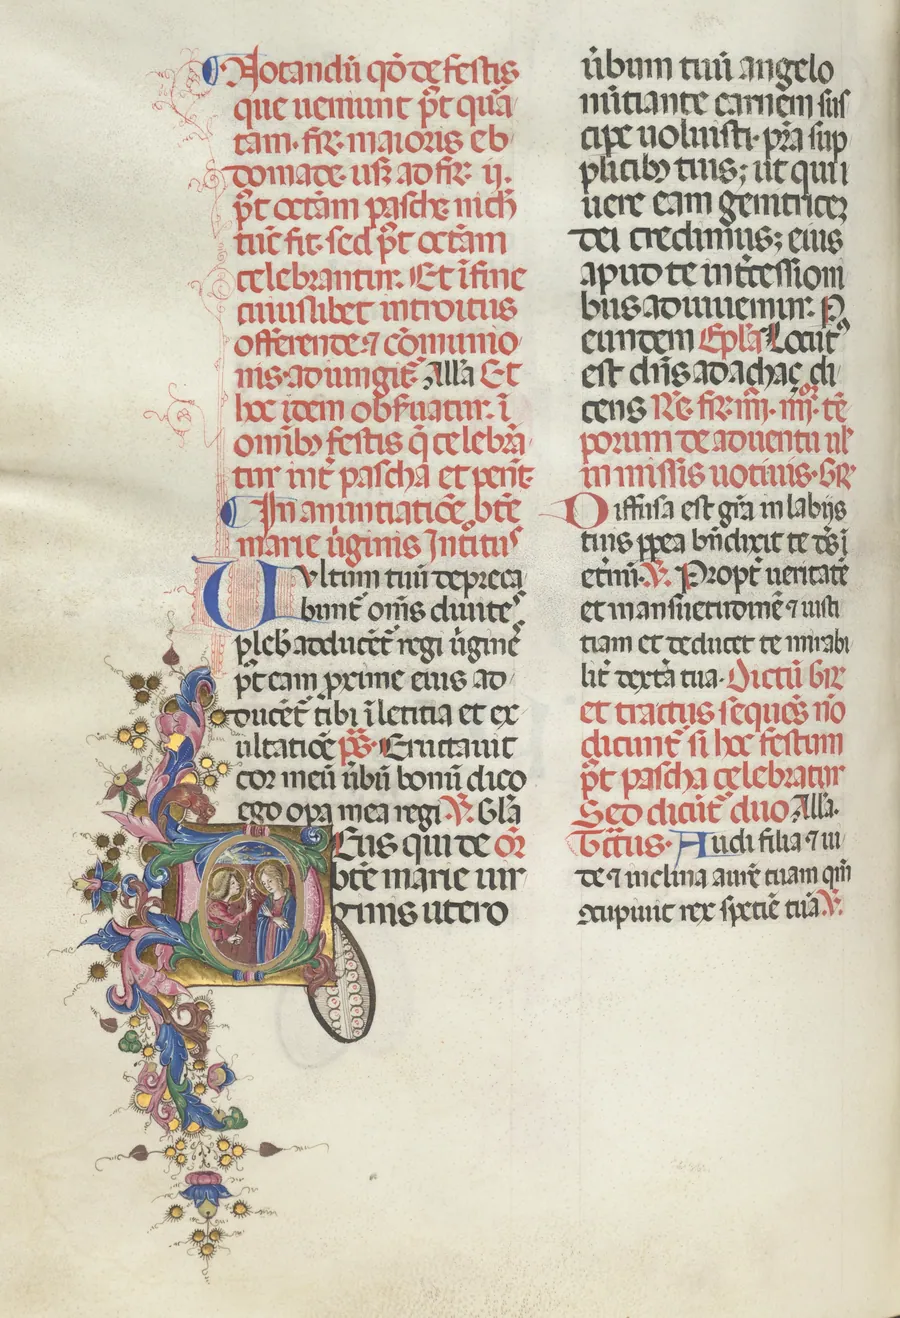 Notandū qō de festis
que ueniunt p̄t quā
tam · fir · maioris eb
domade · usq; ad fir · ii.
p̄t octām pasche nich
tūc fit · sed p̄t octām
celebrantur. Et ī fine
cuiuslibet introitus
offerende · ⁊ cōmunio
nis · adiungit̄ Alla Et
hoc idem obs̄uatur. ī
omīb; festis q̄ celebrā
tur int̄ pascha et pent̄
In anuntiatiōe btē
marie ūginis Introitus
Vultum tuū depreca
bunt̄ om̄s diuites
pleb adducēt̄ regi ūgines
p̄t eam p̄xime eius ad
ducēt̄ tibi ī letitia et ex
ultatiōe p̄s · Eructauit
cor meū ūbū bonū dico
ego opa mea regi V. Glā
Deus qui de or̄
btē marie uir
ginis utero
ūbum tuū angelo
nūtiante carnem sus
cipe uoluisti · prā sup
plicib; tuis; ut qui u
uere eam genitricem
dei credimus; eius
apud te int̄cessioni
bus adiuuemur: P
eundem Epl̄a Locut;
est dn̄s ad achaç di
cens Re · fir · iiii · iiiior · tē
porum de aduentu ul̄
in missis uotiuis · Gr̄
Diffusa est grā in labijs
tuis ppea bn̄dixit te ds̄ ī
et̄nū · V. Propt̄ ueritatē
et mansuetudinē ⁊ iusti
tiam et deducet te mirabi
lit̄ dext̄a tua · Dictū Gr̄
et tractus sequēs nō
dicunt̄ si hoc festum
p̄t pascha celebratur
Sed dicūt̄ duo Alla ·
Tctus · Audi filia ⁊ ui
de ⁊ inclina aurē tuam qm̄
cupiuit rex spetiē tuā V.